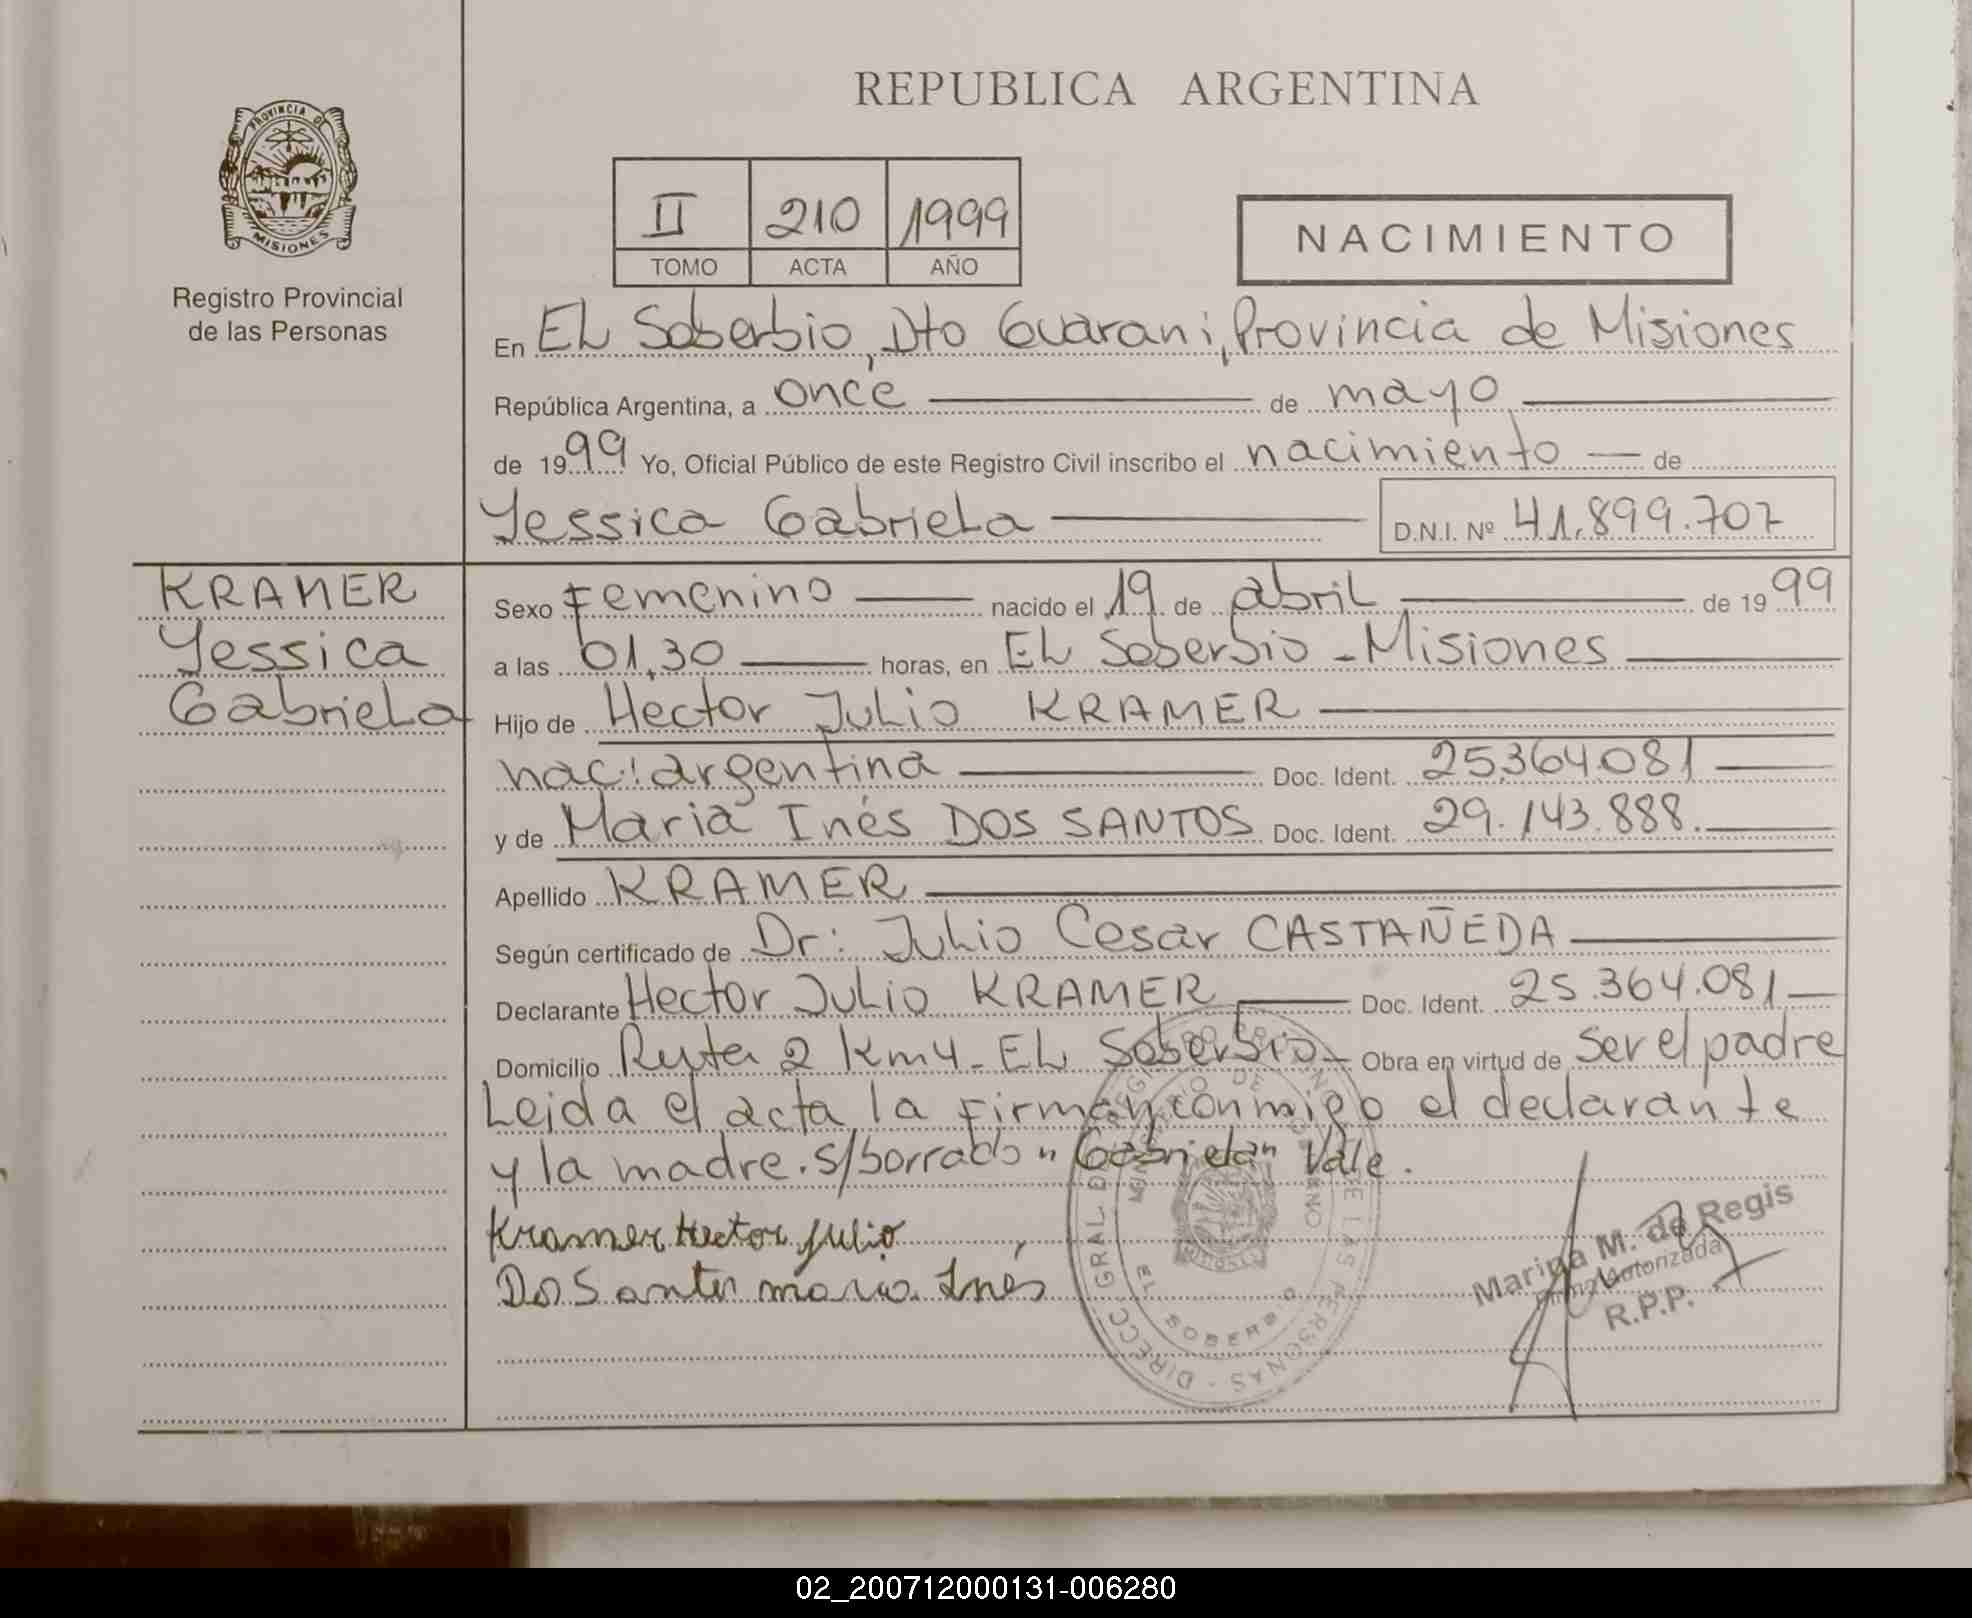 REPUBLICA ARGENTINA
PROVINCIA DE
MISIONES
Registro Provincial
de las Personas
II 210 1999
TOMO ACTA AÑO
NACIMIENTO
En EL Soberbio, Dto Guarani, Provincia de Misiones
República Argentina, a once de mayo
de 1999 Yo, Oficial Público de este Registro Civil inscribo el nacimiento de
Yessica Gabriela D.N.I. Nº 41.899.707
KRAMER
Yessica
Gabriela
Sexo Femenino nacido el 19 de abril de 1999
a las 01,30 horas, en EL Soberbio - Misiones
Hijo de Hector Julio KRAMER
nac: argentina Doc. Ident. 25.364.081
y de Maria Inés DOS SANTOS Doc. Ident. 29.143.888.
Apellido KRAMER
Según certificado de Dr: Julio Cesar CASTAÑEDA
Declarante Hector Julio KRAMER Doc. Ident. 25.364.081
Domicilio Ruta 2 Km 4 - EL Soberbio - Obra en virtud de ser el padre
Leida el acta la firman conmigo el declarante
y la madre. s/borrado "Gabriela" Vale.
Kramer Hector Julio
Dos Santos maria Inés
DIRECC. GRAL. DE REGISTRO PROVINCIAL DE LAS PERSONAS
MINISTERIO DE GOBIERNO
MISIONES
EL SOBERBIO
Marina M. de Regis
Firma Autorizada
R.P.P.
02_200712000131-006280